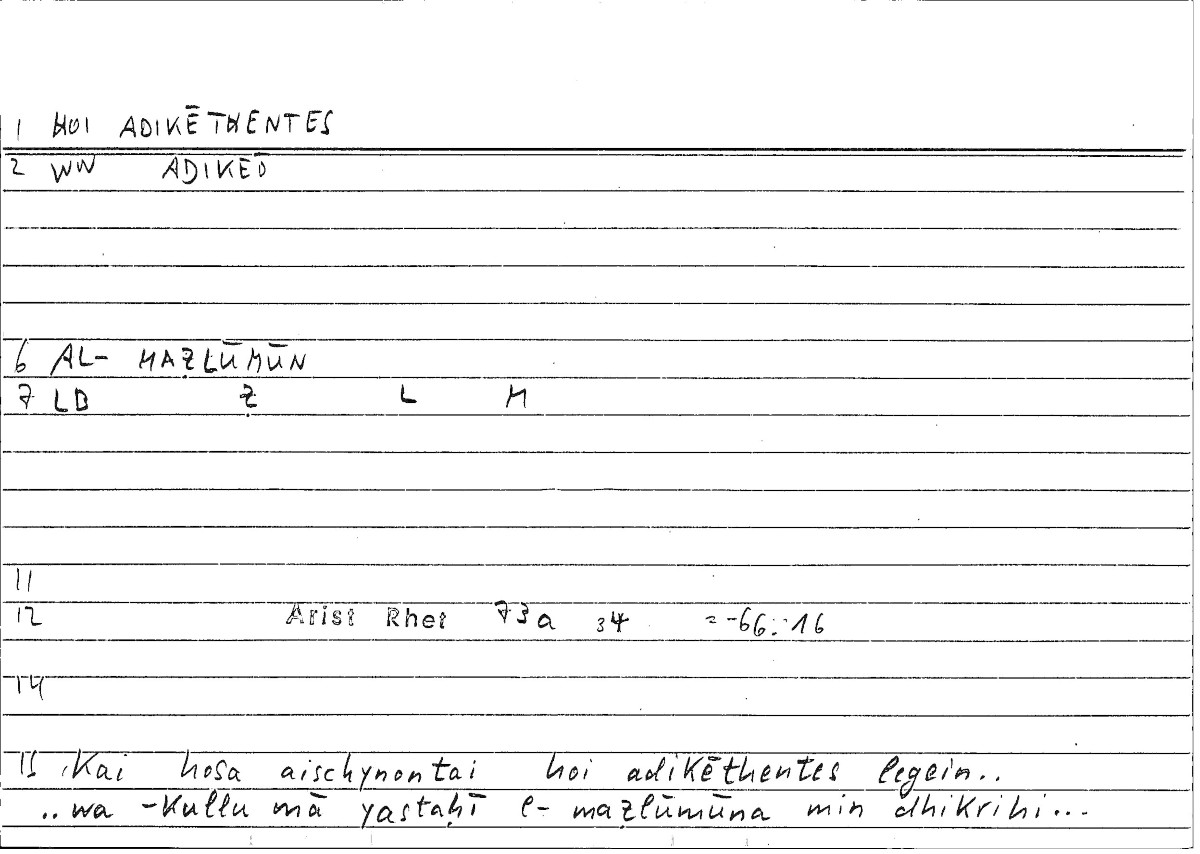 1 HOI ADIKĒTHENTES
2 WN ADIKEŌ
6 AL- MAẒLŪMŪN
7 LB Ẓ L M
11
12 Arist Rhet 73a 34 = 66:16
14
15 Kai hosa aischynontai hoi adikēthentes legein..
..wa -kullu mā yastaḥī l- maẓlūmūna min dhikrihi...